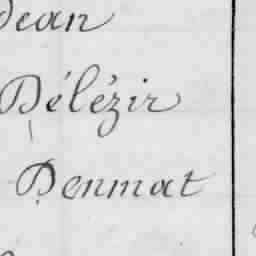 Jean
Délézir
Denmat